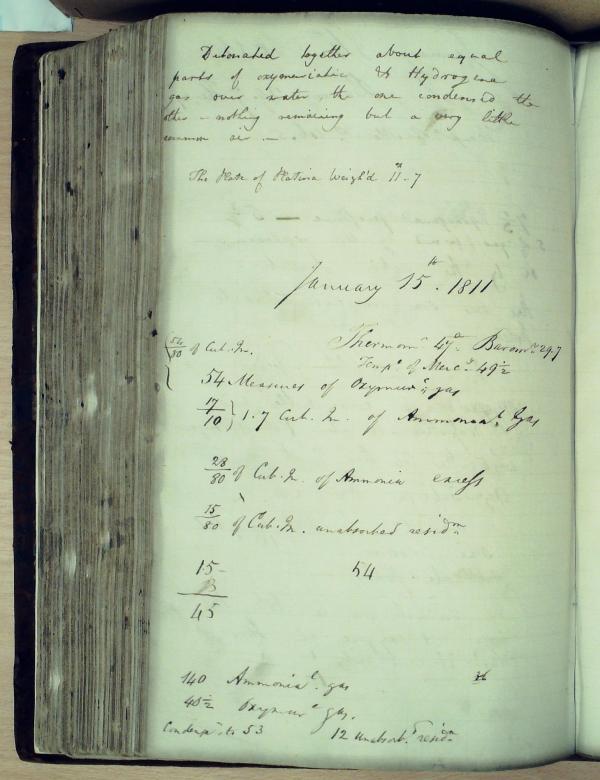 Detonated together about equal
parts of oxymuriatic & Hydrogene
gas over water the one condensed the
other - nothing remaining but a very little
common air -
The Plate of Platina Weigh'd 11 - 7
January 15th. 1811
54/80 of Cub. In. Thermomr 47° Baromr 29.7
Tempr of Mercy 49 1/2
54 Measures of Oxymurc gas
17/10 } 1.7 Cub. In. of Ammoniacl Gas
23/80 of Cub. In. of Ammonia excess
15/80 of Cub. In. unabsorbed residm
15 54
3
45
140 Ammoniacl gas
45 1/2 Oxymurc gas.
Condensd to 53 12 unabsorbd residm